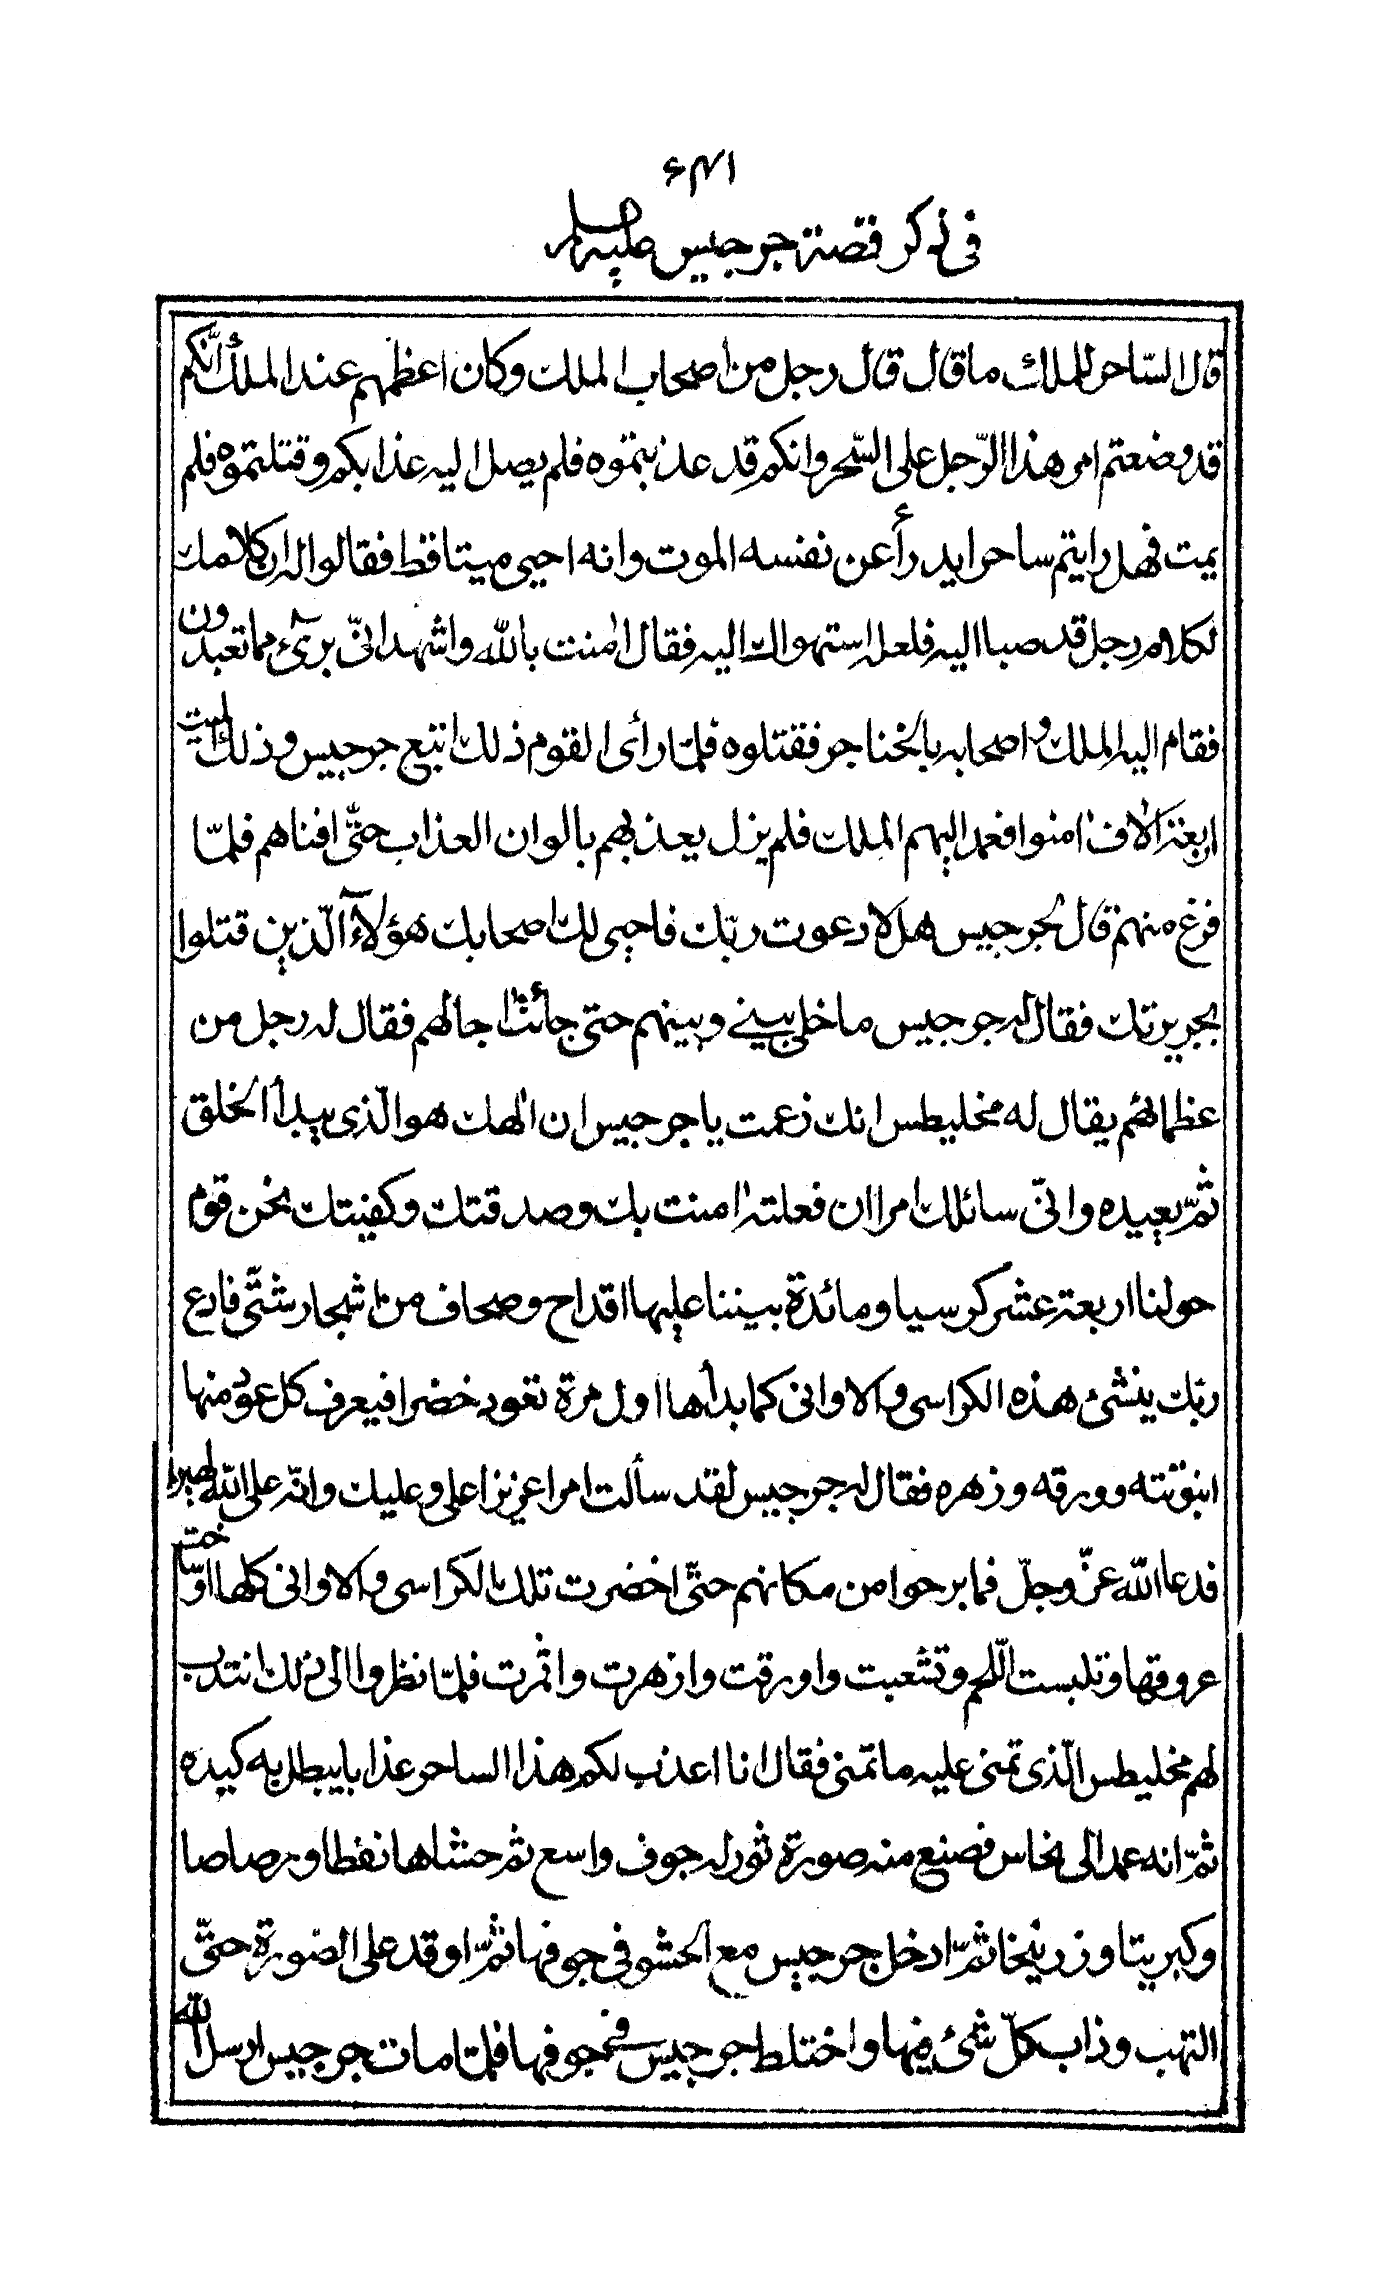 ۶۴۱
في ذكر قصة جرجيس عليه السلام
قال الساحر للملك ما قال قال رجل من اصحاب الملك وكان اعظمهم عند الملك انكم
قد وضعتم امر هذا الرّجل على السّحر وانكم قد عذبتموه فلم يصل اليه عذابكم وقتلتموه فلم
يمت فهل رايتم ساحرا يدرأ عن نفسه الموت وانه احيى ميتا قط فقالوا له ان كلامك
لكلام رجل قد صبا اليه فلعله استهواك اليه فقال اٰمنت بالله واشهد انّى برئ مما تعبدون
فقام اليه الملك و اصحابه بالخناجر فقتلوه فلمّا رأى القوم ذلك اتبع جرجيس وذلك اليت
اربعة الاٰف اٰمنوا فعمد اليهم الملك فلم يزل يعذبهم بالوان العذاب حتّى افناهم فلمّا
فرغ منهم قال لجرجيس هلا دعوت ربّك فاحيى لك اصحابك هؤلاء الّذين قتلوا
بجريرتك فقال له جرجيس ما خلى بينى وبينهم حتى جائت اٰجالهم فقال له رجل من
عظمائهم يقال له مخليطس انك زعمت يا جرجيس ان الٰهك هو الّذى يبدأ الخلق
ثمّ يعيده وانّى سائلك امرا ان فعلته اٰمنت بك وصدقتك وكفيتك نحن قوم
حولنا اربعة عشر كرسيا ومائدة بيننا عليها اقداح وصحاف من اشجار شتّى فادع
ربّك ينشئ هذه الكراسى والاوانى كما بدأها اول مرة تعود خضرا فيعرف كل عود منها
انبوتته وورقه وزهره فقال له جرجيس لقد سألت امرا عزيزا على وعليك وانّه على الله لهين
فدعا الله عزّ وجلّ فما برحوا من مكانهم حتّى اخضرت تلك الكراسى والاوانى كلها وساخت
عروقها وتلبست اللّحم وتشعبت واورقت وازهرت واثمرت فلمّا نظروا الى ذلك انتدب
لهم مخليطس الّذى تمنى عليه ما تمنى فقال انا اعذب لكم هذا الساحر عذابا يبطل به كيده
ثمّ انه عمد الى نحاس فصنع منه صورة ثور له جوف واسع ثم حشاها نفطا ورصاصا
وكبريتا وزرنيخا ثمّ ادخل جرجيس مع الحشو فى جوفها ثمّ اوقد على الصّورة حتّى
التهب وذاب كلّ شئ فيها واختلط جرجيس فى جوفها فلمّا مات جرجيس ارسل الله